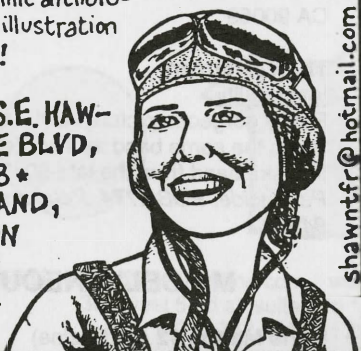 illustration
!
S.E. HAW-
E BLVD,
B *
AND,
N
shawntfr@hotmail.com